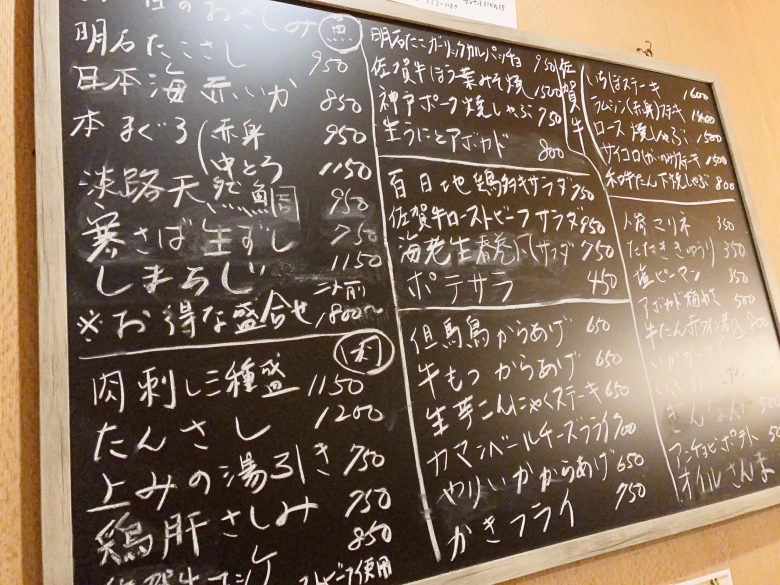 のおさしみ 魚
明石たこさし 950
日本海赤いか 850
本まぐろ(赤身 950
中とろ 1150
淡路天然鯛 950
寒さば生ずし 750
しまあじ 1150
※お得な盛合せ 二人前 1800〜
肉
肉刺し三種盛 1150
たんさし 1200
上みの湯引き 750
鶏肝さしみ 750
850
ストビーフ使用
明石たこガーリックカルパッチョ 950
佐賀牛ほう葉みそ焼 1500
神戸ポーク焼しゃぶ 750
生うにとアボカド 800
百日地鶏サラダ 750
佐賀牛ローストビーフサラダ 950
海老生春巻風サラダ 750
ポテサラ 450
但馬鳥からあげ 650
牛もつからあげ 650
生芋こんにゃくステーキ 650
カマンベールチーズフライ 700
やりいかからあげ 650
かきフライ 750
佐賀牛
いちぼステーキ 1600
(赤身)ステーキ
ロース焼しゃぶ 1500
サイコロ ステーキ 1500
和牛たん下焼しゃぶ 800
マリネ 350
たたききゅうり 350
塩ピーマン 350
アボカド 500
牛たん赤ワイン煮込 800
ぎんなん 500
アンチョビポテト
オイルさんま